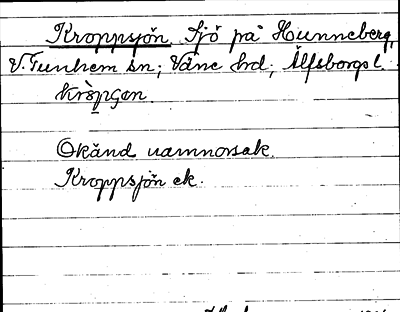 Kroppsjön Sjö på Hunneberg,
V. Tunhem sn; Väne hd; Älfsborgs l.
kròpꞔon.
Okänd namnorsak.
Kroppsjön ek.